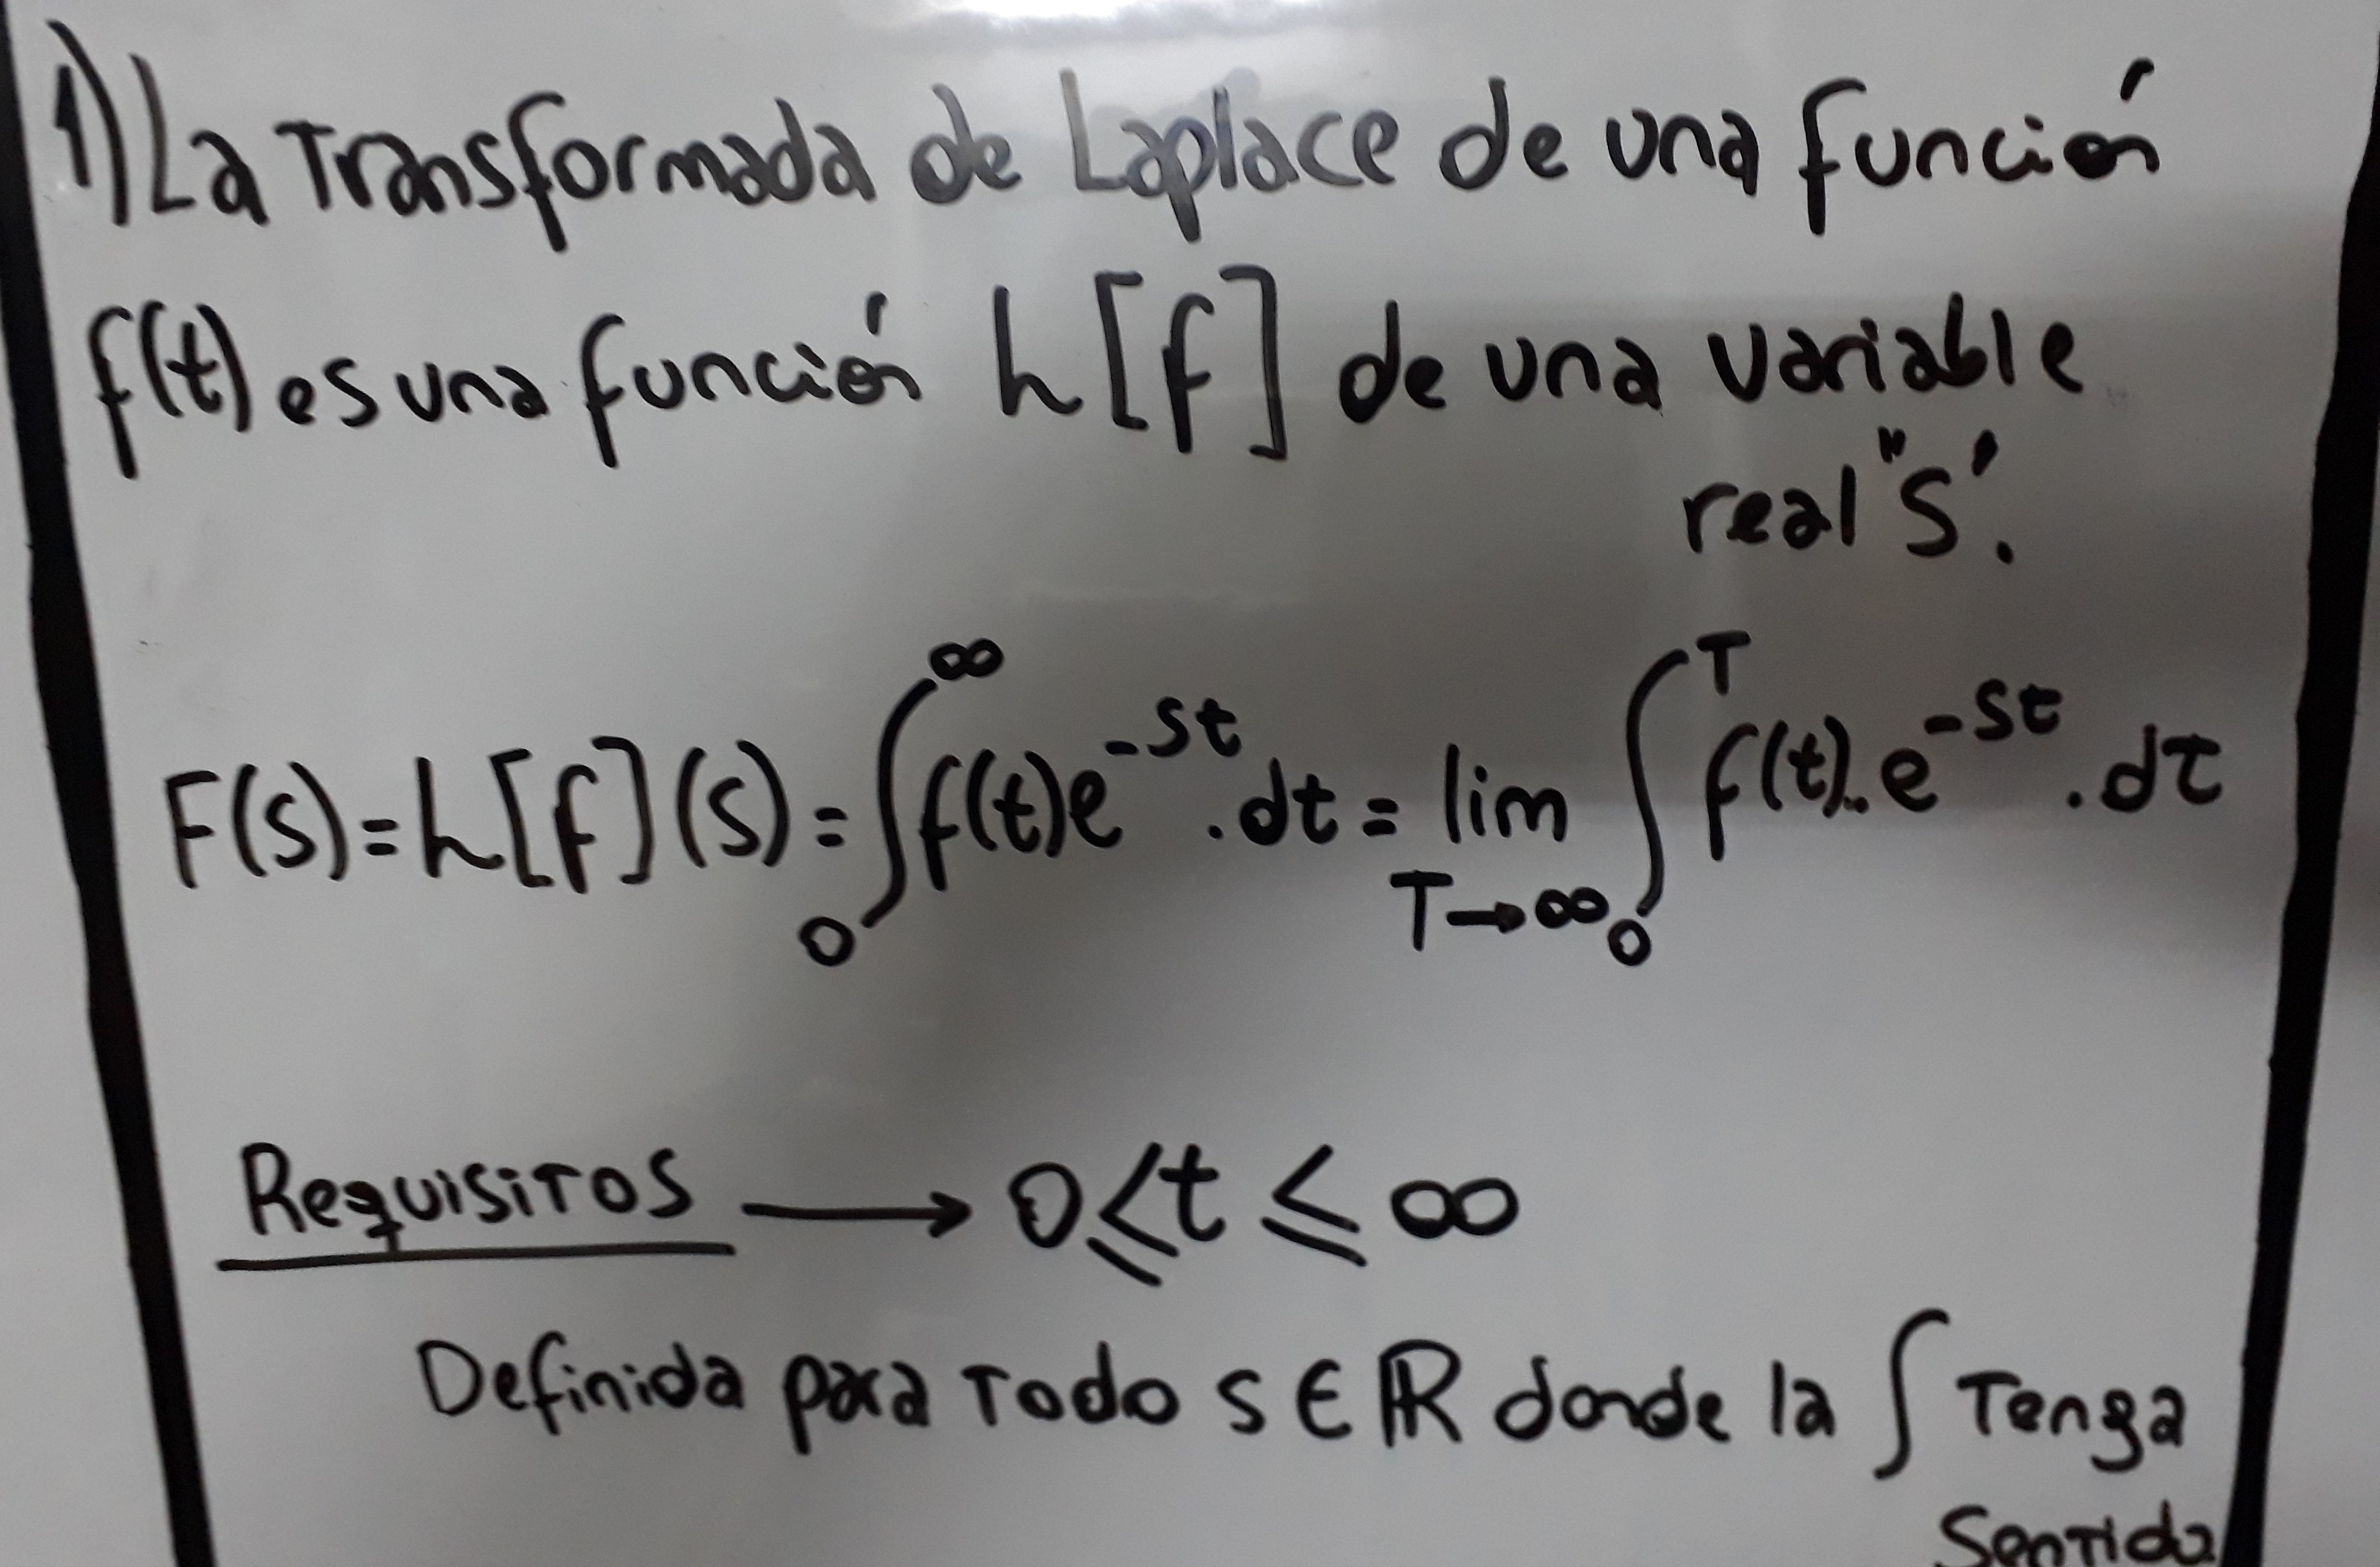 1) La Transformada de Laplace de una función
f(t) es una función h[f] de una variable
real "s".
F(s) = h[f](s) = ∫₀^∞ f(t)e^-st . dt = lim T→∞ ∫₀^T f(t). e^-st . dt
Requisitos → 0 ≤ t ≤ ∞
Definida para Todo s ∈ ℝ donde la ∫ Tenga
Sentido